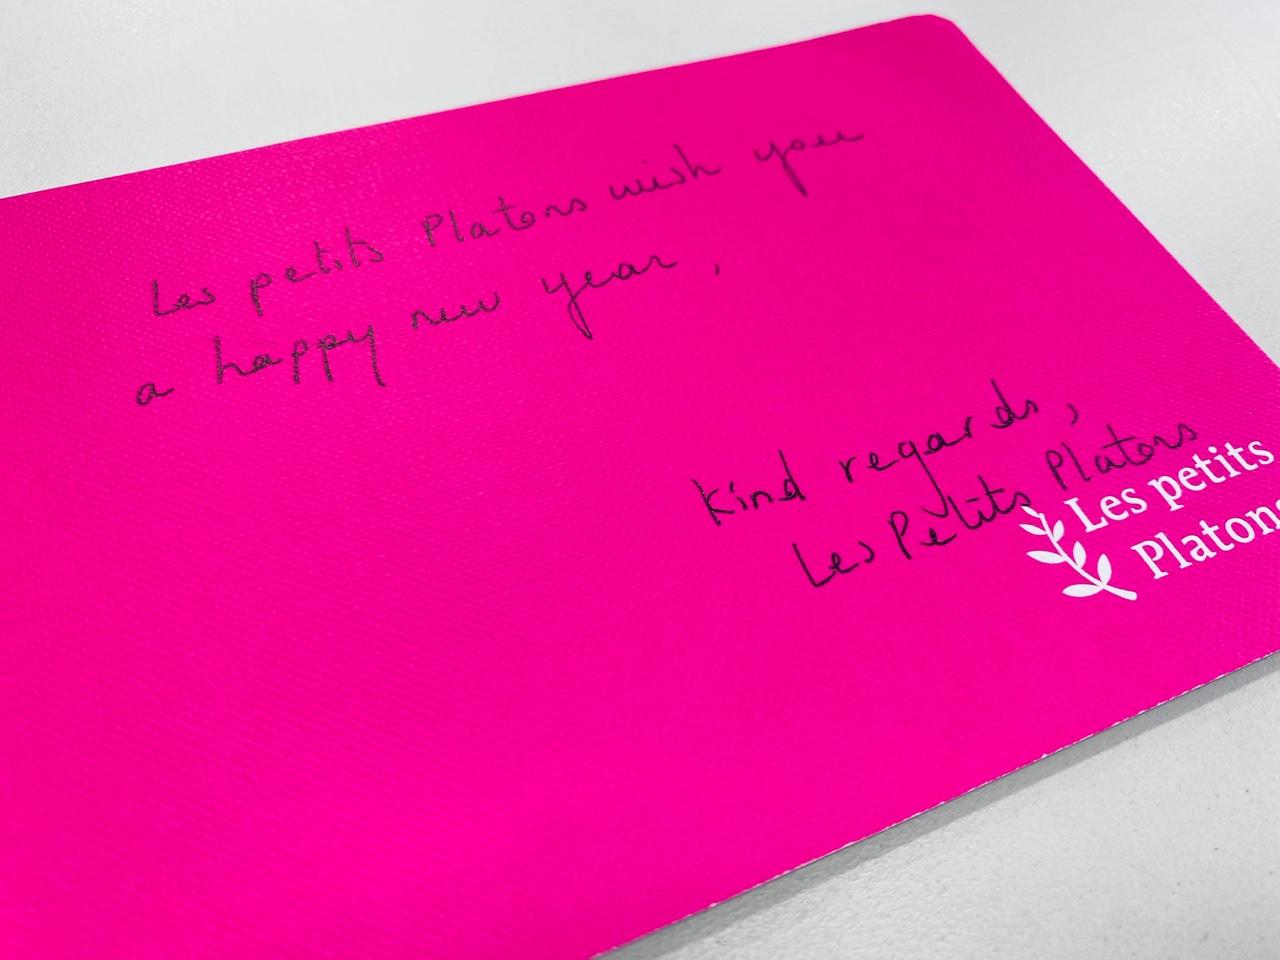 Les petits Platons wish you
a happy new year,
Kind regards,
Les Petits Platons
Les petits
Platons